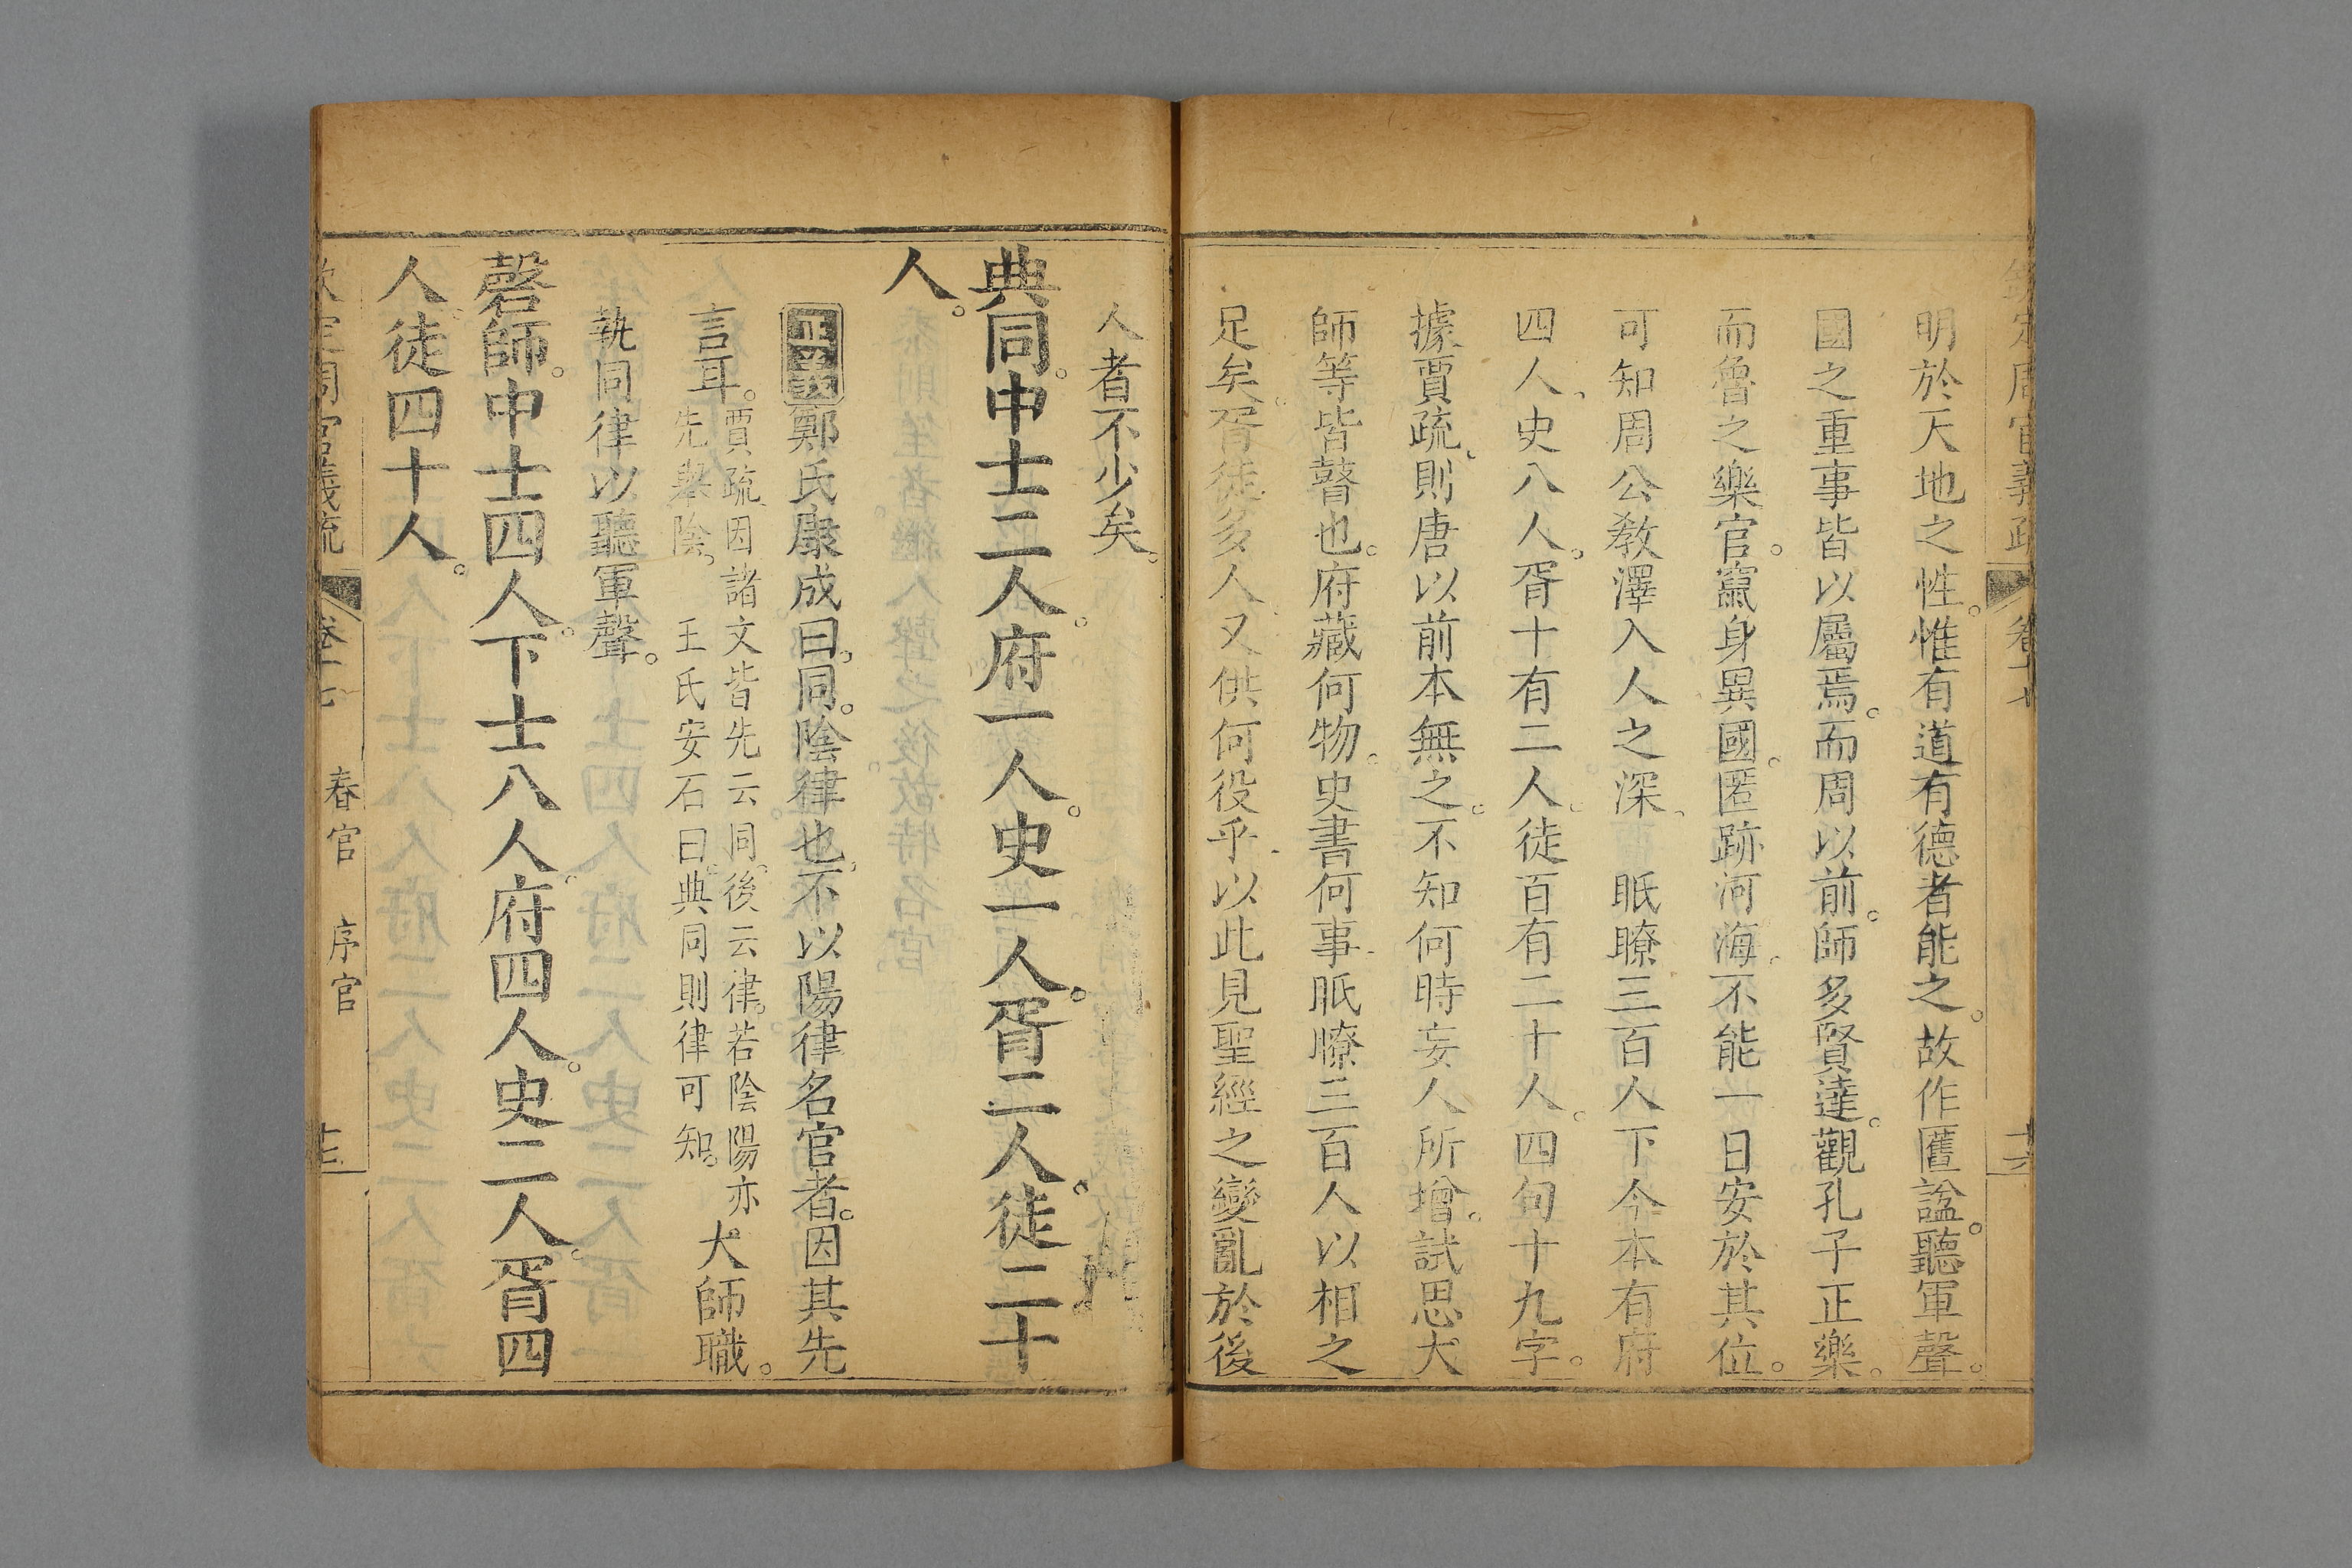 欽定周官義疏 卷十七 十六
明於天地之性。惟有道有德者能之。故作匶諡。聽軍聲。
國之重事皆以屬焉。而周以前。師多賢達。觀孔子正樂。
而魯之樂官。竄身異國。匿跡河海。不能一日安於其位。
可知周公教澤入人之深。 眂瞭三百人下今本有府
四人。史八人。胥十有二人。徒百有二十人。四句十九字。
據賈疏。則唐以前本無之。不知何時妄人所增。試思大
師等皆瞽也。府藏何物。史書何事。眂瞭三百人以相之
足矣。胥徒多人又供何役乎。以此見聖經之變亂於後
人者不少矣。
典同。中士二人。府一人。史一人。胥二人。徒二十
人。
正義鄭氏康成曰。同。陰律也。不以陽律名官者。因其先
言耳。
賈疏。因諸文皆先云同。後云律。若陰陽亦
先舉陰。 王氏安石曰。典同則律可知。
大師職。
執同律以聽軍聲。
磬師。中士四人。下士八人。府四人。史二人。胥四
人。徒四十人。
欽定周官義疏 卷十七 春官 序官